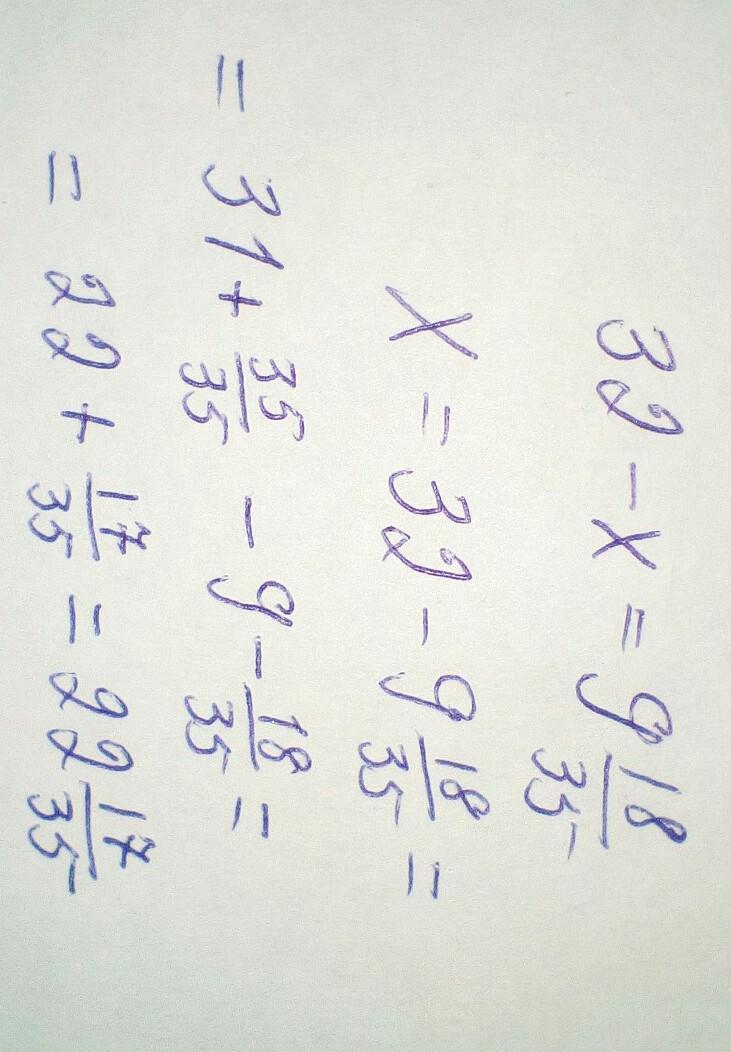 32 - x = 9 18/35
x = 32 - 9 18/35 =
= 31 + 35/35 - 9 - 18/35 =
= 22 + 17/35 = 22 17/35